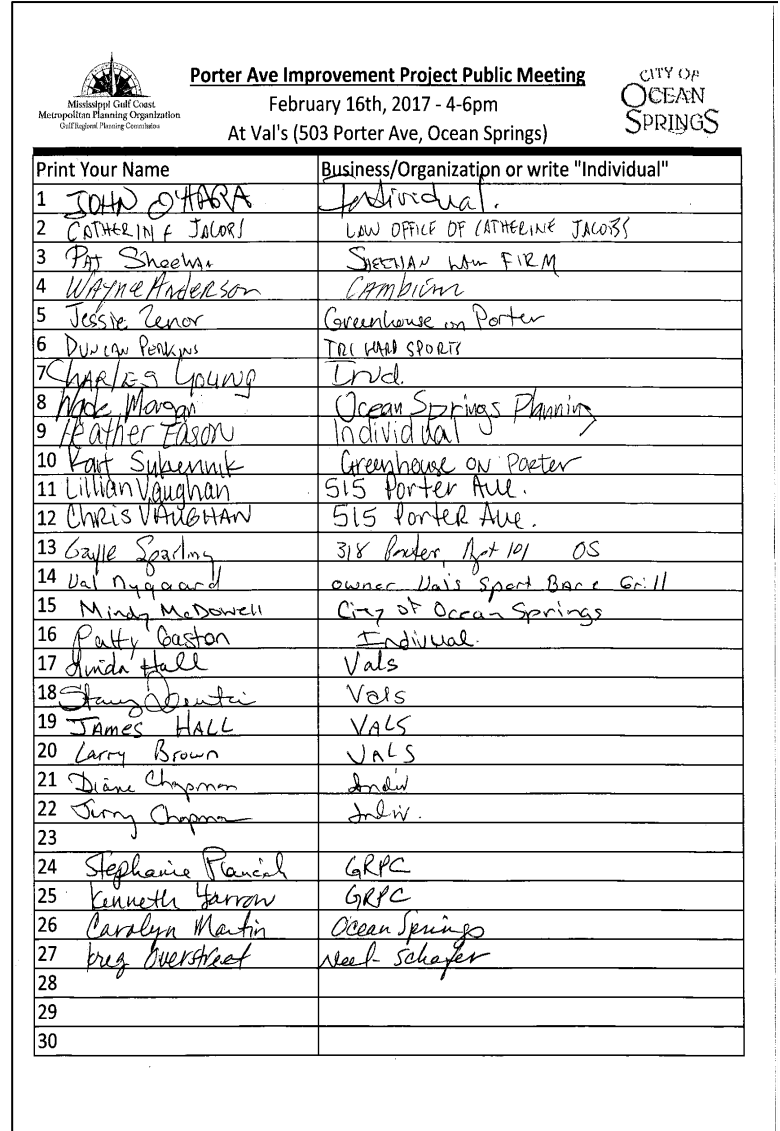 Mississippi Gulf Coast
Metropolitan Planning Organization
Gulf Regional Planning Commission
Porter Ave Improvement Project Public Meeting
February 16th, 2017 - 4-6pm
At Val's (503 Porter Ave, Ocean Springs)
CITY OF
OCEAN
SPRINGS
Print Your Name Business/Organization or write "Individual"
1 JOHN O'HARA Individual.
2 CATHERINE JACOBS LAW OFFICE OF CATHERINE JACOBS
3 PAT Sheehan SHEEHAN LAW FIRM
4 WAyne Anderson CAmbium
5 Jessie Zenor Greenhouse on Porter
6 DUNCAN PERKINS TRI HARD SPORTS
7 CHARLES YOUNG Ind.
8 Wade Morgan Ocean Springs Planning
9 Heather Eason Individual
10 Greenhouse ON Porter
11 Lillian Vaughan 515 Porter Ave.
12 CHRIS VAUGHAN 515 Porter Ave.
13 Gayle Sparling 318 Porter, Apt 101 OS
14 Val Nygaard owner Val's Sport Bar & Grill
15 Mindy McDowell City of Ocean Springs
16 Patty Gaston Indivual.
17 Linda Hall Vals
18 Vals
19 JAMES HALL VALS
20 Larry Brown VALS
21 Diane Chapman Indiv
22 Jerry Chapman Indiv.
23
24 Stephanie GRPC
25 Kenneth Yarrow GRPC
26 Carolyn Martin Ocean Springs
27 Greg Overstreet Neel-Schafer
28
29
30